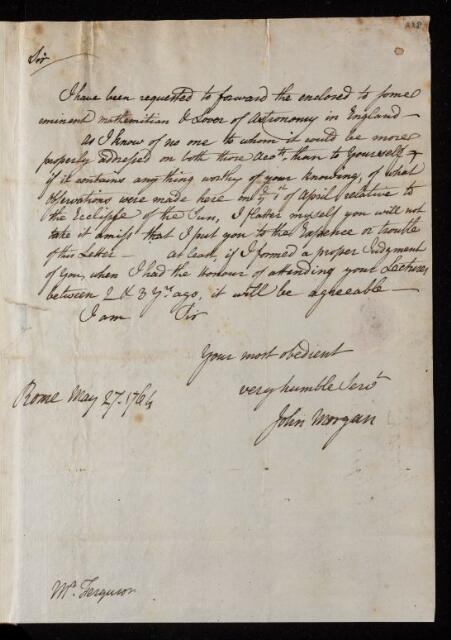 Sir
I have been requested to forward the enclosed to some
eminent mathematitian & Lover of Astronomy in England —
as I know of no one to whom it would be more
properly addressed on both those Acctts. than to Yourself &
if it contains any thing worthy of your knowing, of what
Observations were made here on ye 1st of April relative to
the Ecclipse of the Sun, I flatter myself you will not
take it amiss that I put you to the Expence or trouble
of this Letter — At least, if I formed a proper Judgment
of You, when I had the honour of attending your Lectures
between 2 & 3 Yrs. ago, it will be agreeable —
I am Sir
Your most obedient
very humble Servt
John Morgan
Rome May 27. 1764
Mr. Ferguson